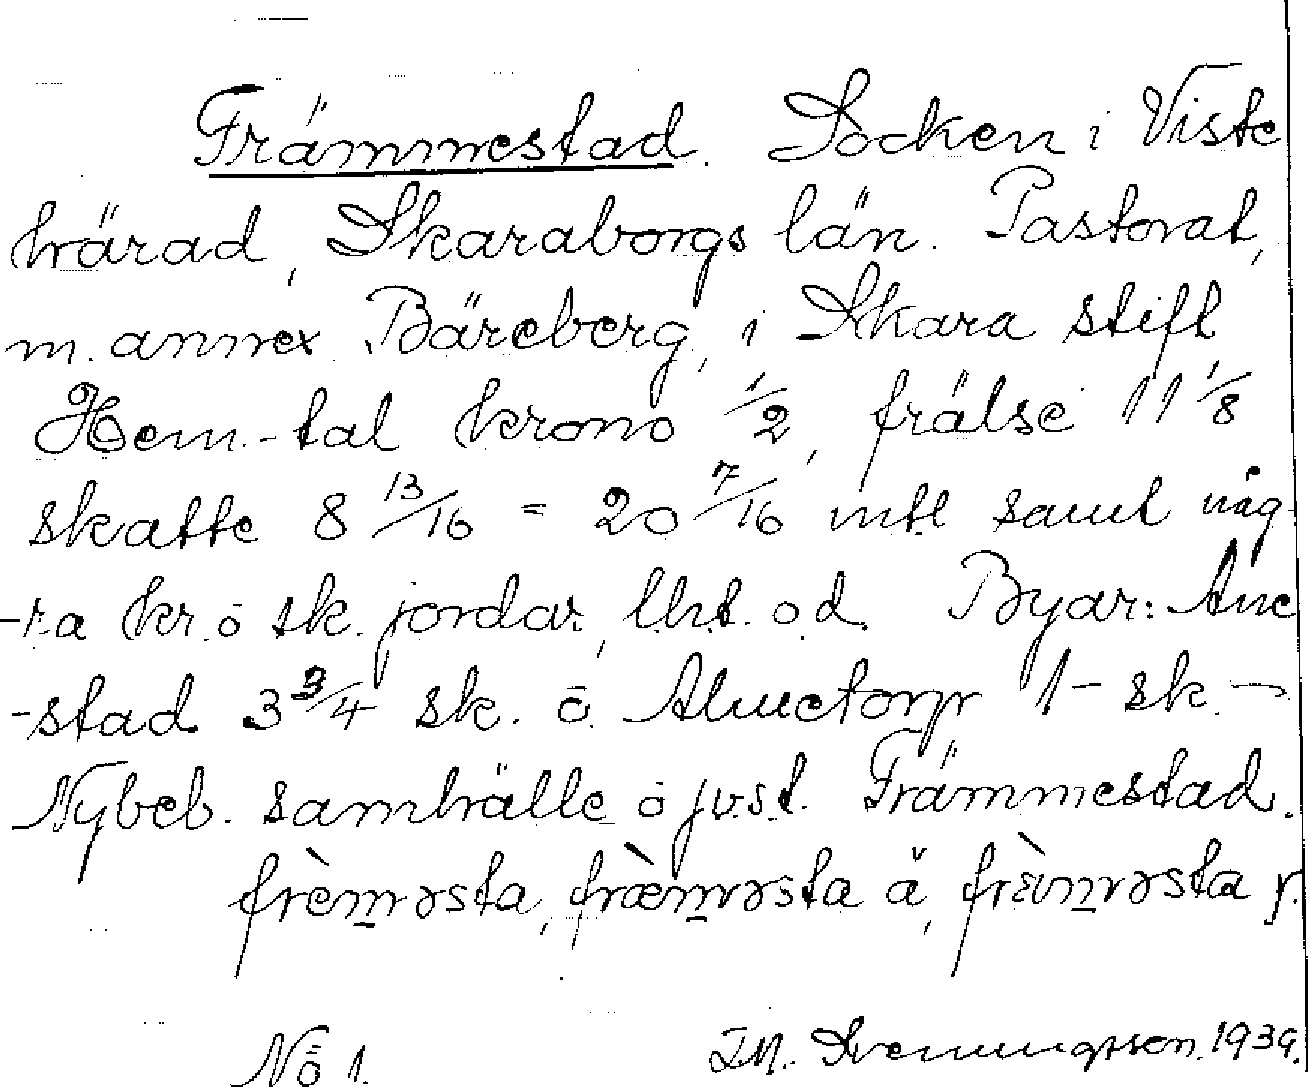 Främmestad. Socken i Viste
härad, Skaraborgs län. Pastorat,
m. annex Bäreberg, i Skara stift
Hem.-tal krono 1/2, frälse 11 1/8
skatte 8 13/16 = 20 7/16 mtl samt någ-
-ra kr. o sk. jordar, lht. o.d. Byar:
-stad 3 3/4 sk. o. Almetorp 1 - sk. -
Nybeb. samhälle o jvst. Främmestad.
No 1. Svenungsson. 1939.